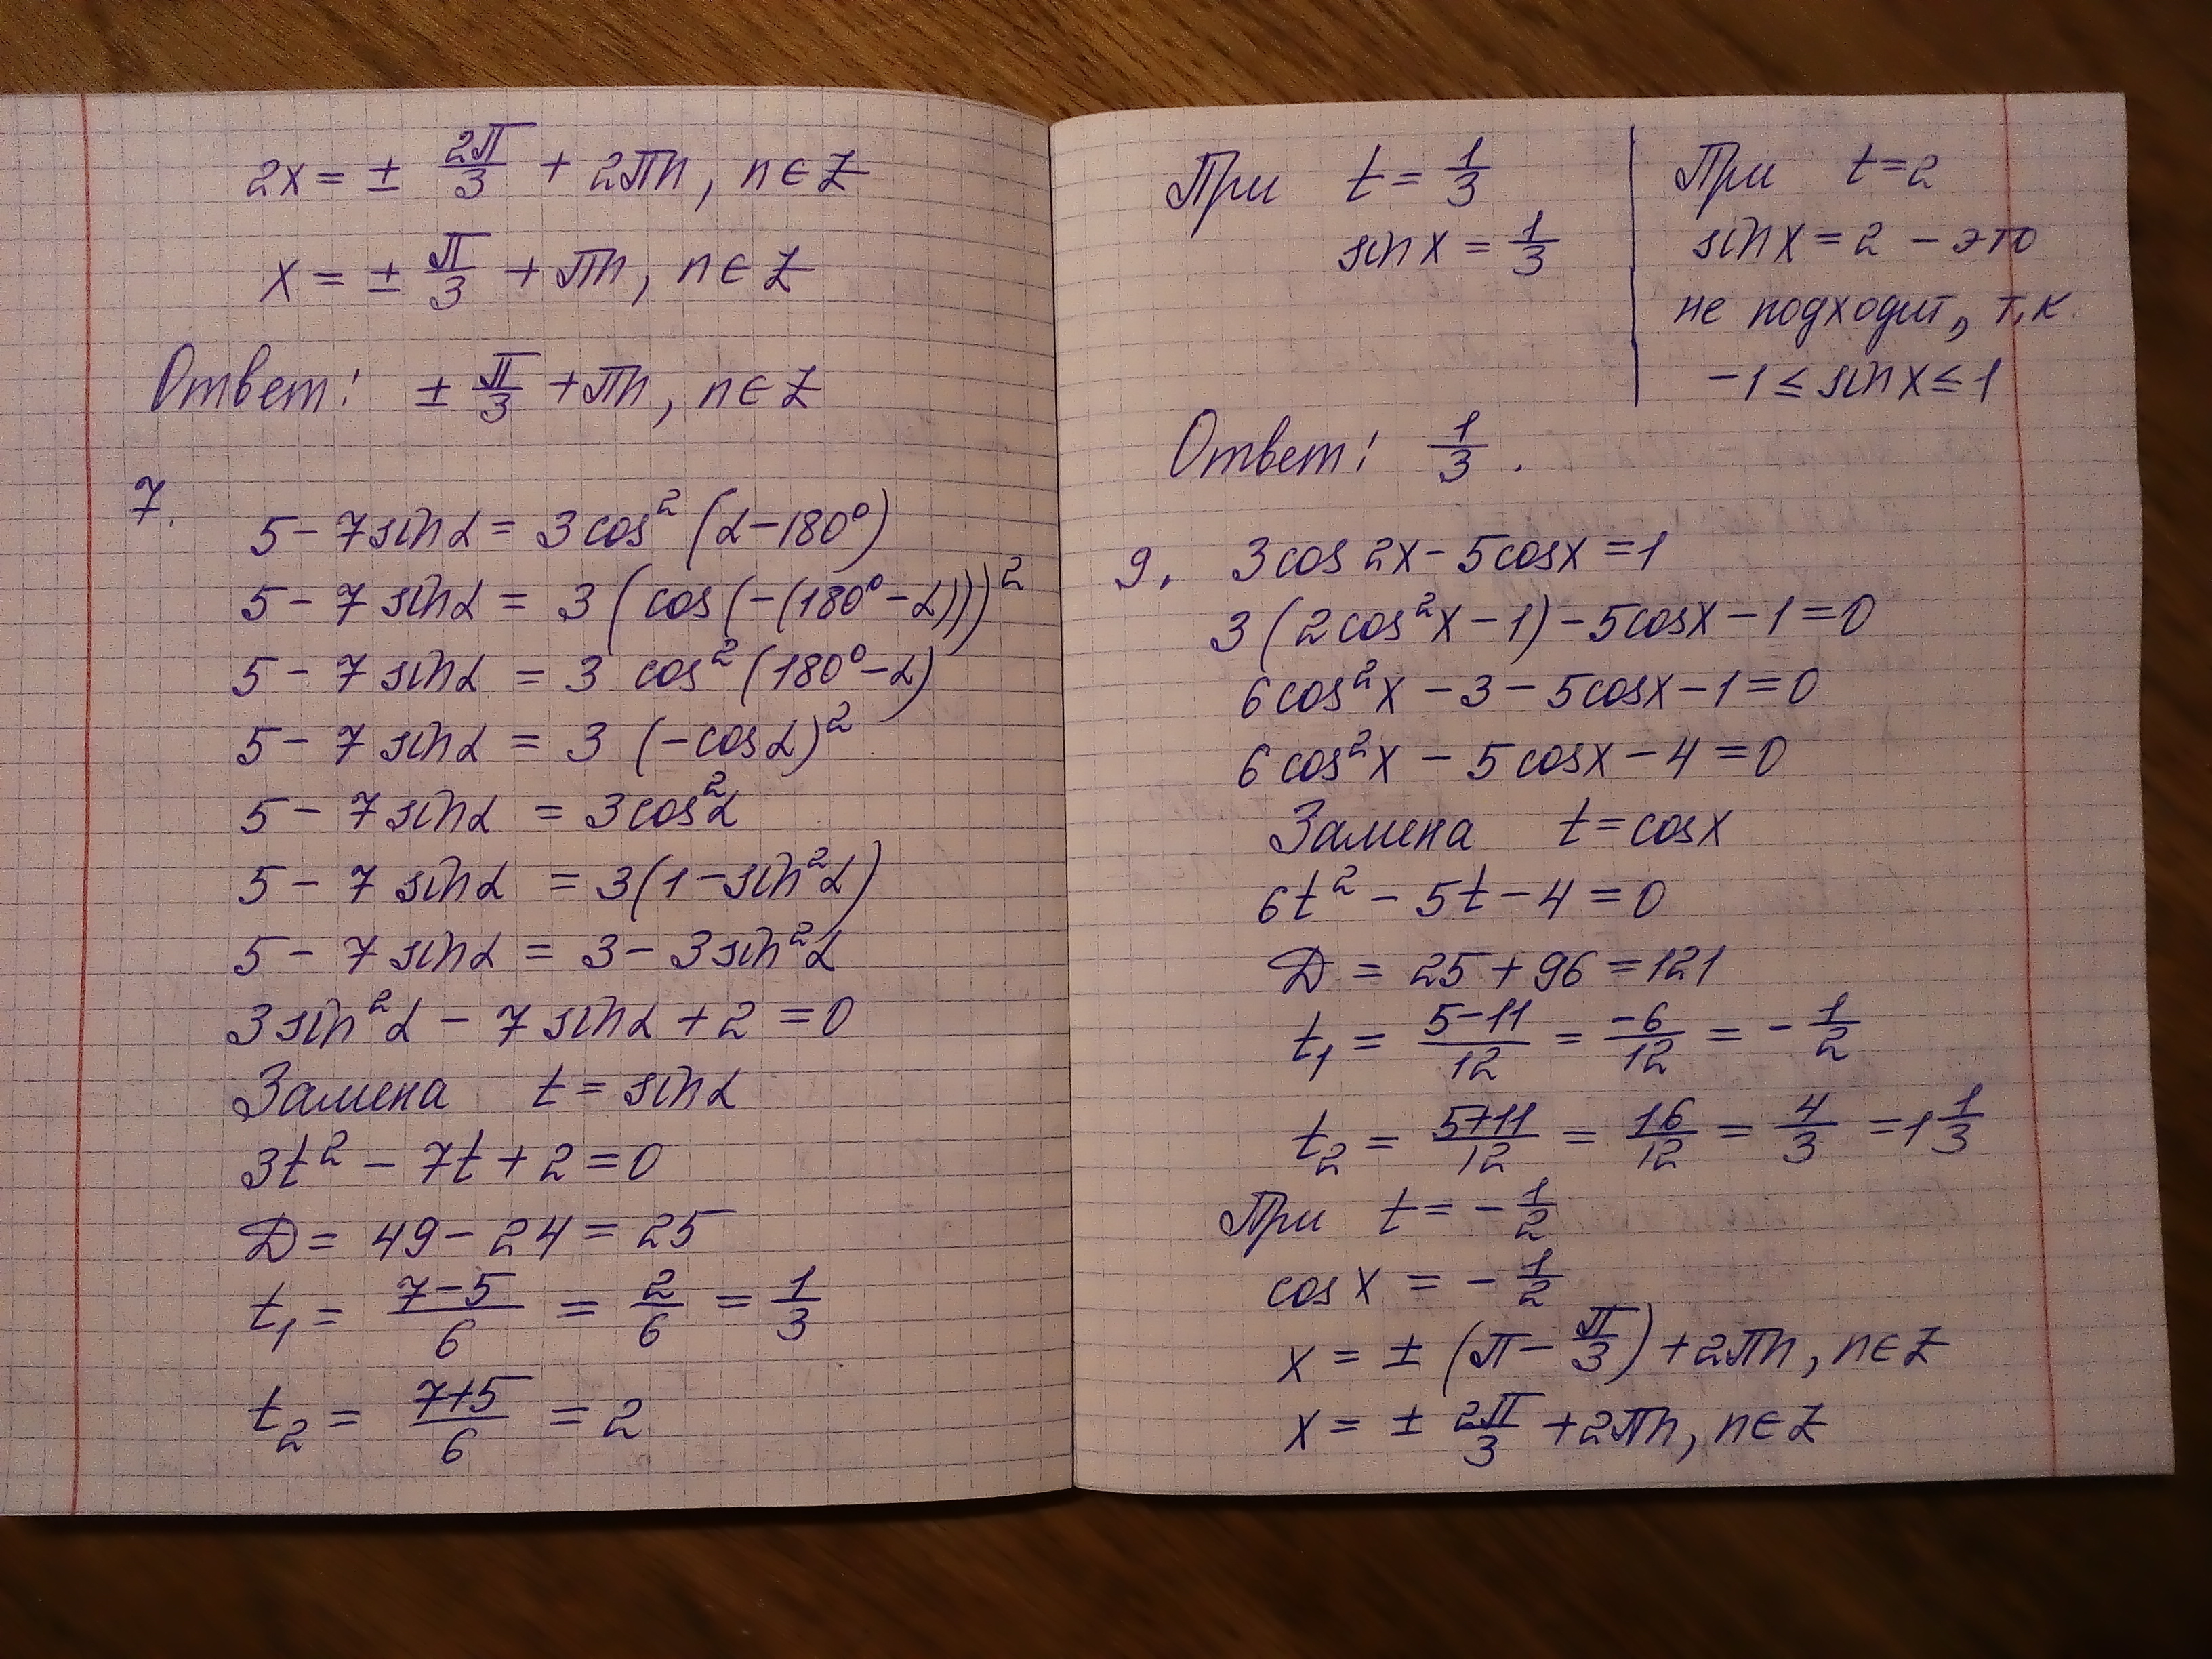 2x = ± 2π/3 + 2πn, n∈Z
x = ± π/3 + πn, n∈Z
Ответ: ± π/3 + πn, n∈Z
7.
5 - 7 sinα = 3 cos² (α - 180°)
5 - 7 sinα = 3 (cos (-(180° - α)))²
5 - 7 sinα = 3 cos² (180° - α)
5 - 7 sinα = 3 (-cosα)²
5 - 7 sinα = 3cos²α
5 - 7 sinα = 3(1 - sin²α)
5 - 7 sinα = 3 - 3sin²α
3 sin²α - 7 sinα + 2 = 0
Замена t = sinα
3t² - 7t + 2 = 0
D = 49 - 24 = 25
t₁ = (7-5)/6 = 2/6 = 1/3
t₂ = (7+5)/6 = 2
При t = 1/3
sin x = 1/3
При t = 2
sin x = 2 - это
не подходит, т.к.
-1 ≤ sin x ≤ 1
Ответ: 1/3.
9. 3cos 2x - 5cosx = 1
3(2cos²x - 1) - 5cosx - 1 = 0
6cos²x - 3 - 5cosx - 1 = 0
6cos²x - 5cosx - 4 = 0
Замена t = cosx
6t² - 5t - 4 = 0
D = 25 + 96 = 121
t₁ = (5-11)/12 = -6/12 = - 1/2
t₂ = (5+11)/12 = 16/12 = 4/3 = 1 1/3
При t = - 1/2
cos x = - 1/2
x = ± (π - π/3) + 2πn, n∈Z
x = ± 2π/3 + 2πn, n∈Z